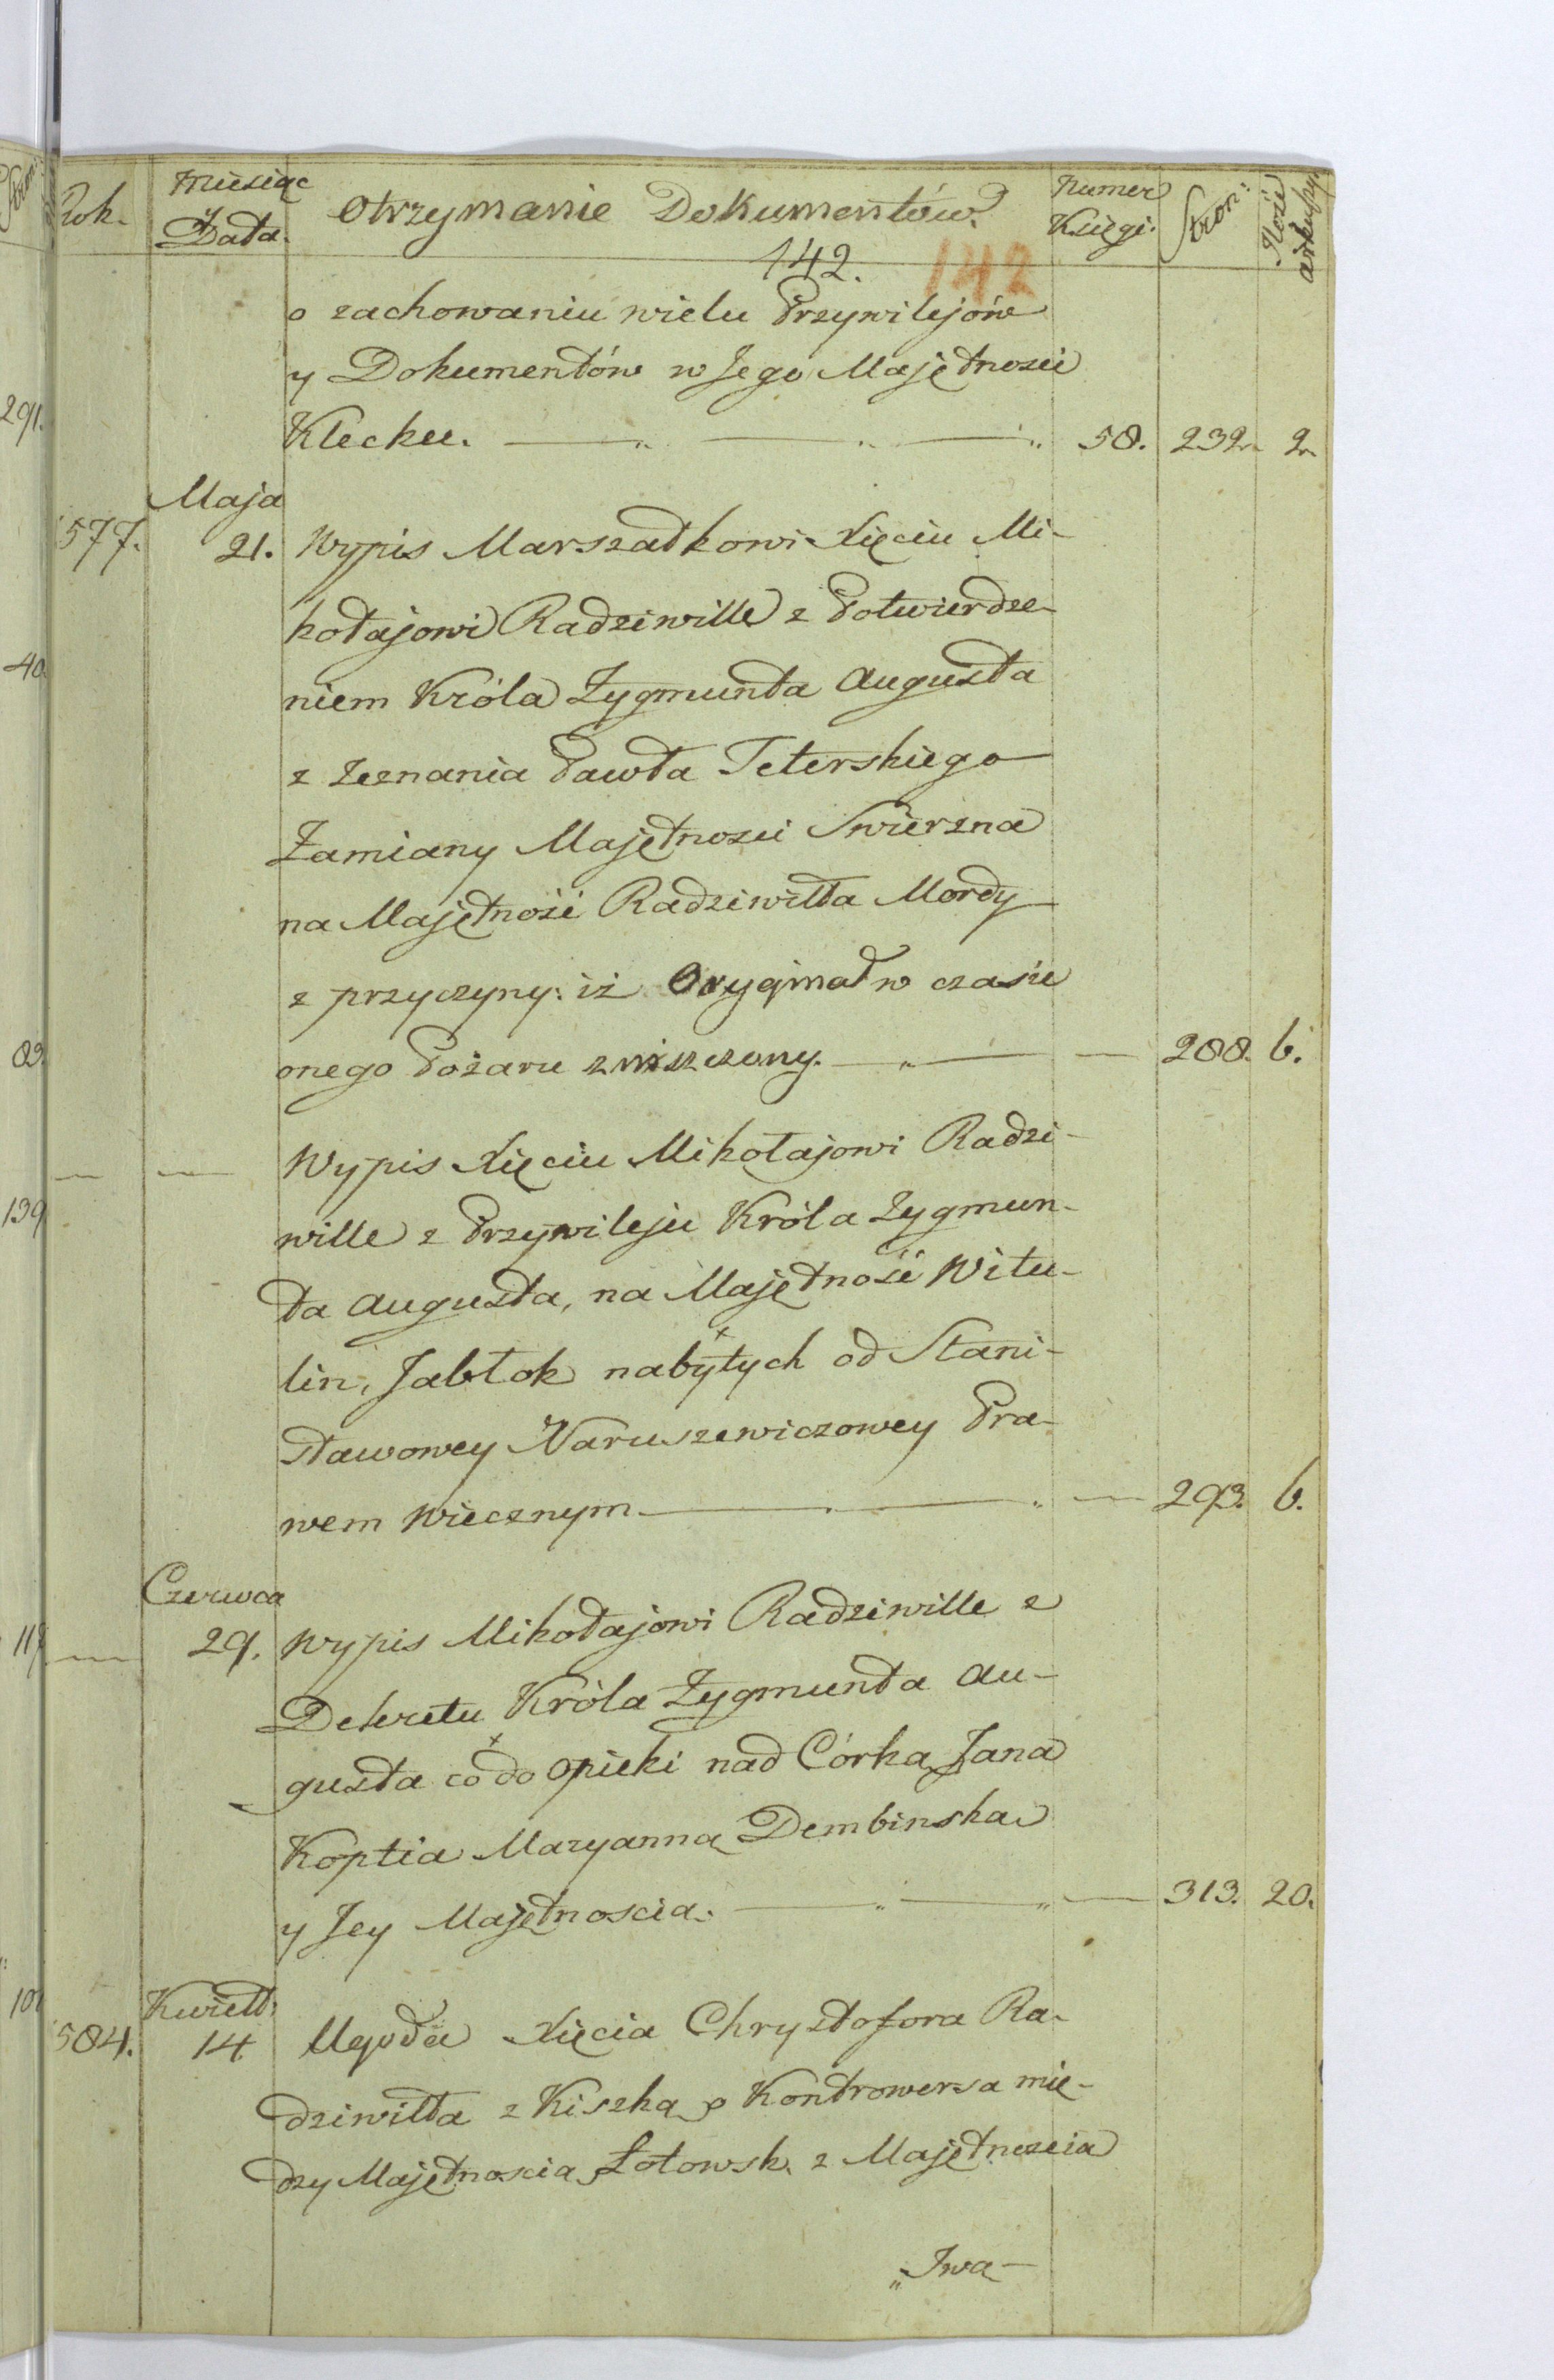 Rok. Miesiąc y Data. Otrzymanie Dokumentów. Numer Księgi: Stron: Ilość arkuszy.
142. 142
o zachowaniu wielu Przywilejów
y Dokumentów w Jego Majętnosci
Klecku. 58. 232. 2.
Maja
1577. 21. Wypis Marszałkowi Xięciu Mi-
kołajowi Radziwille z Potwierdze-
niem Króla Zygmunta Augusta
z zeznania Pawła Teterskiego
Zamiany Majętnosci Swierzna
na Majętność Radziwiłła Mordy
z przyczyny: iż Oryginał w czasie
onego Pożaru zniszczony. — 288. 6.
— — Wypis Xięciu Mikołajowi Radzi-
wille z Przywileju Króla Zygmun-
ta Augusta, na Majętność Witu-
lin, Jabłok nabytych od Stani-
sławowey Naruszewiczowey Pra-
wem Wiecznym — 293. 6.
Czerwca
— 29. Wypis Mikołajowi Radziwille z
Dekretu Króla Zygmunta Au-
gusta co do Opieki nad Córką Jana
Koptia Maryanną Dembinską
y Jey Majętnoscią. — 313. 20.
Kwiet:
1584. 14. Ugoda Xięcia Chrysztofora Ra-
dziwiłła z Kiszką o Kontrowersa mię-
dzy Majętnoscią Łotowsk. z Majętnoscią
„Iwa-
291.
40.
83.
139
119
101